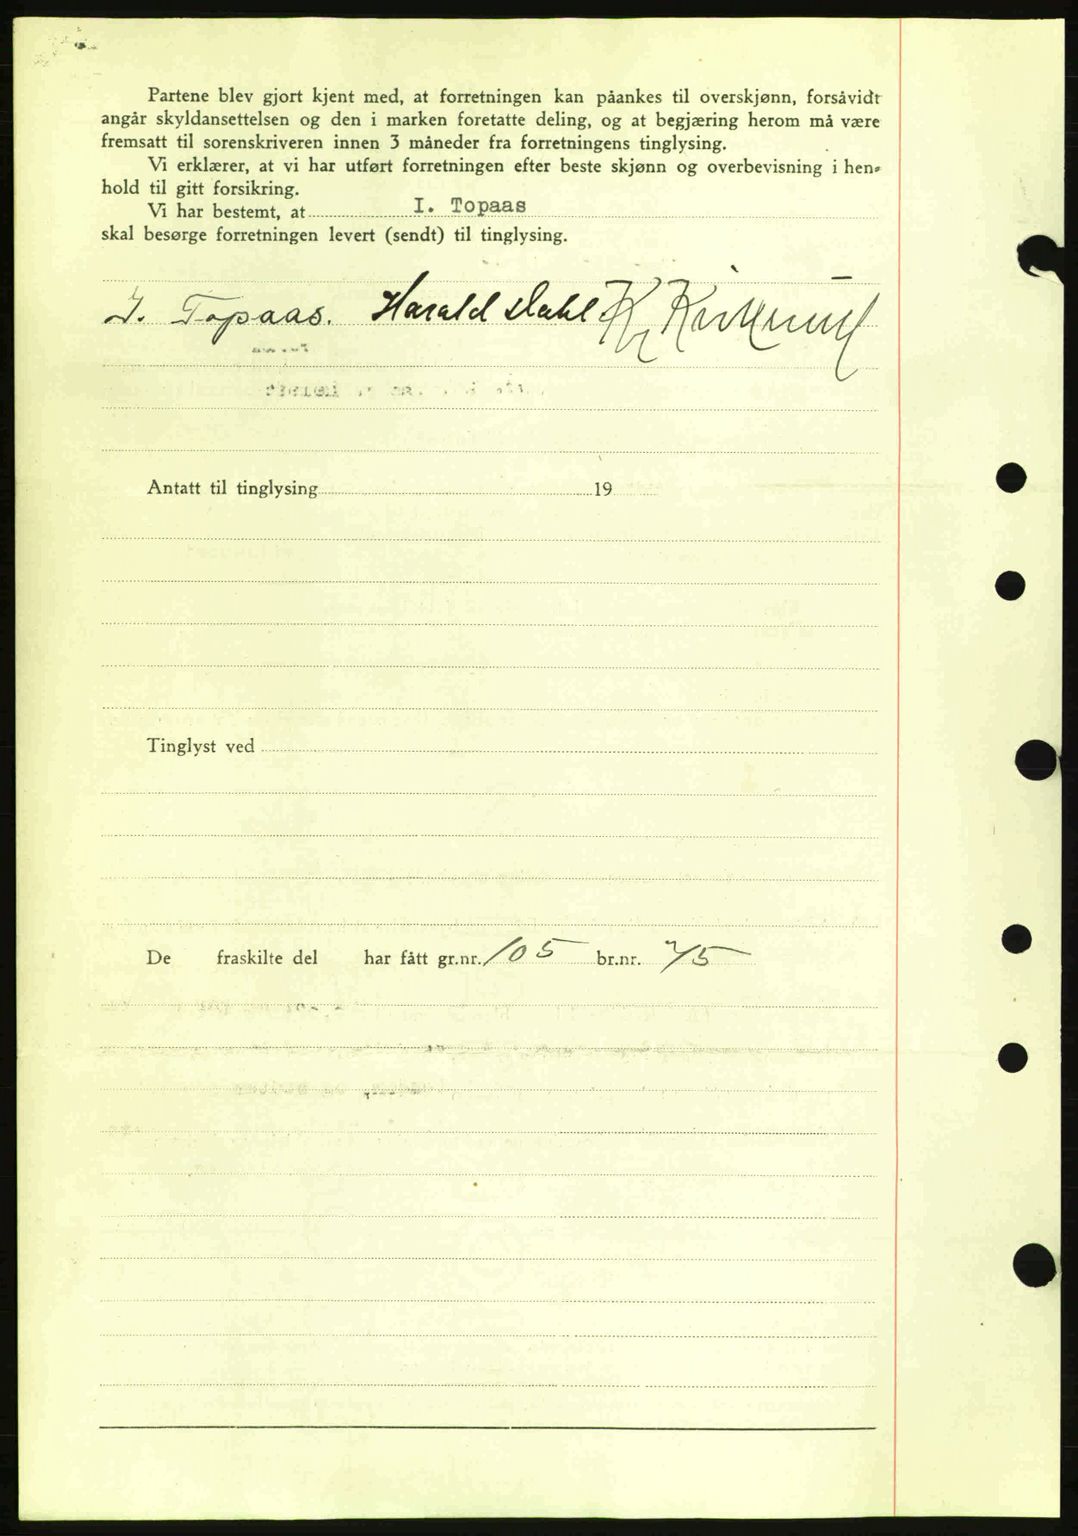 Partene blev gjort kjent med, at forretningen kan påankes til overskjønn, forsåvidt
angår skyldansettelsen og den i marken foretatte deling, og at begjæring herom må være
fremsatt til sorenskriveren innen 3 måneder fra forretningens tinglysing.
Vi erklærer, at vi har utført forretningen efter beste skjønn og overbevisning i hen-
hold til gitt forsikring.
Vi har bestemt, at I. Topaas
skal besørge forretningen levert (sendt) til tinglysing.
I. Topaas. Harald Dahl K.
Antatt til tinglysing 19
Tinglyst ved
De fraskilte del har fått gr.nr. 105 br.nr. 75